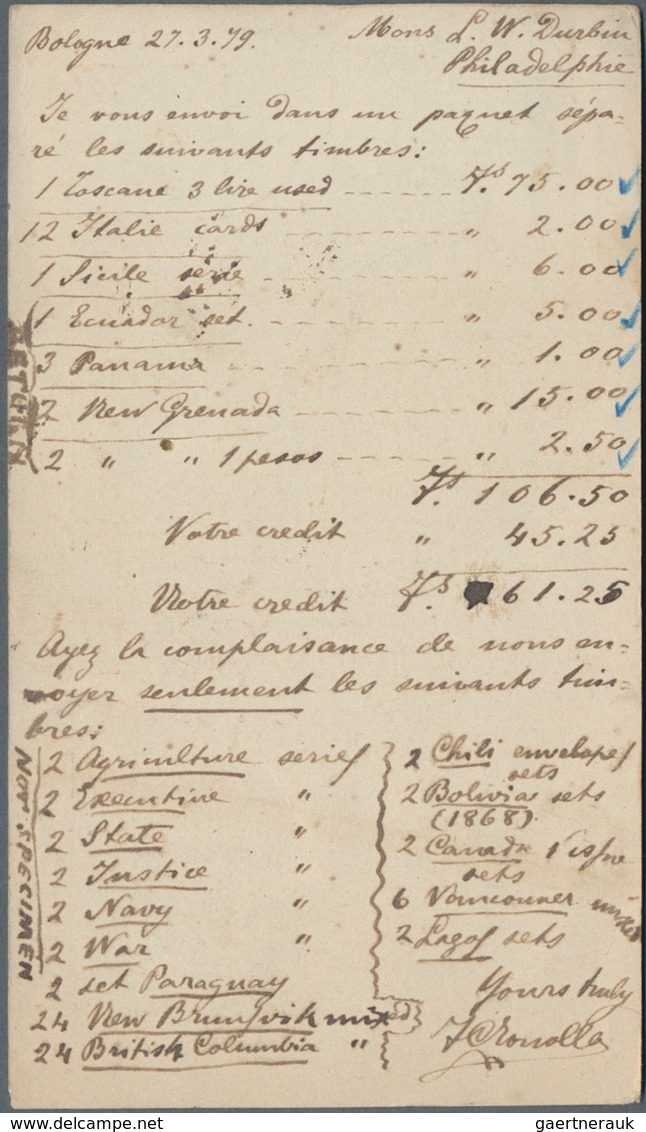 Bologne 27.3.79. Mons L. W. Durbin
Philadelphie
Je vous envoi dans un paquet sépa-
ré les suivants timbres:
1 Toscane 3 lire used - - - - - Fs. 75.00
12 Italie cards - - - - - " 2.00
1 Sicile série - - - - - " 6.00
1 Ecuador set. - - - - - " 5.00
3 Panama - - - - - " 1.00
2 New Grenada - - - - - " 15.00
2 " " 1 pesos - - - - " 2.50
Fs. 106.50
Votre credit " 45.25
Notre credit Fs. 61.25
Ayez la complaisance de nous en-
voyer seulement les suivants tim-
bres:
2 Agriculture series
2 Executive "
2 State "
2 Justice "
2 Navy "
2 War "
2 set Paraguay
24 New Brunsvik mixed
24 British Columbia "
2 Chili envelopes
sets
2 Bolivia sets
(1868).
2 Canada 1 issue
sets
6 Vancouver mixed
2 Lagos sets
Yours truly
RETURN
NOT SPECIMEN
gaertnerauk